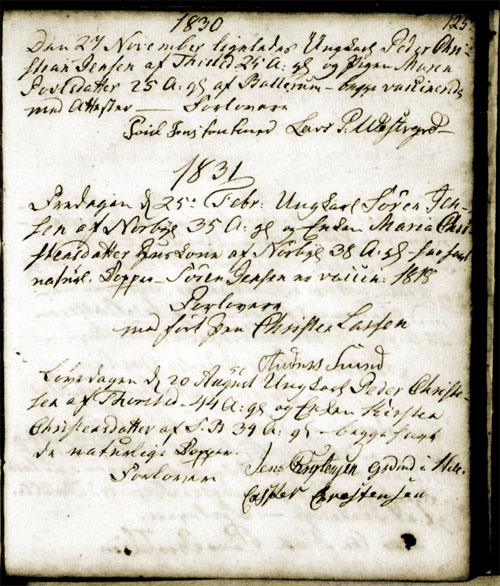 1830
125
Den 27 November Ungkarl Peder Chri-
stian Jensen af Thisted 25 A: gl og Pigen Maren
Povlsdatter 25 A: gl af Ballerum – begge vaccinerede
med Attester — Forlovere
Lars P. Westergrd
1831
Fredagen d 25 Febr: Ungkarl Søren Jen-
sen af Norbye 35 A: gl og Enken Maria Chri-
stensdatter af Norbye 38 A: gl
naturl: Kopper – Søren Jensen er vaccin: 1818
Forlovere
med ført Pen Christen Larsen
Anders Svend
Løverdagen d 20 August Ungkarl Peder Christe-
sen af Thorsted – 44 A: gl og Enken Kirsten
Christensdatter af S. B 34 A: gl – begge havt
de naturlige Kopper.
Forlovere
Jens Christensen
Christensen